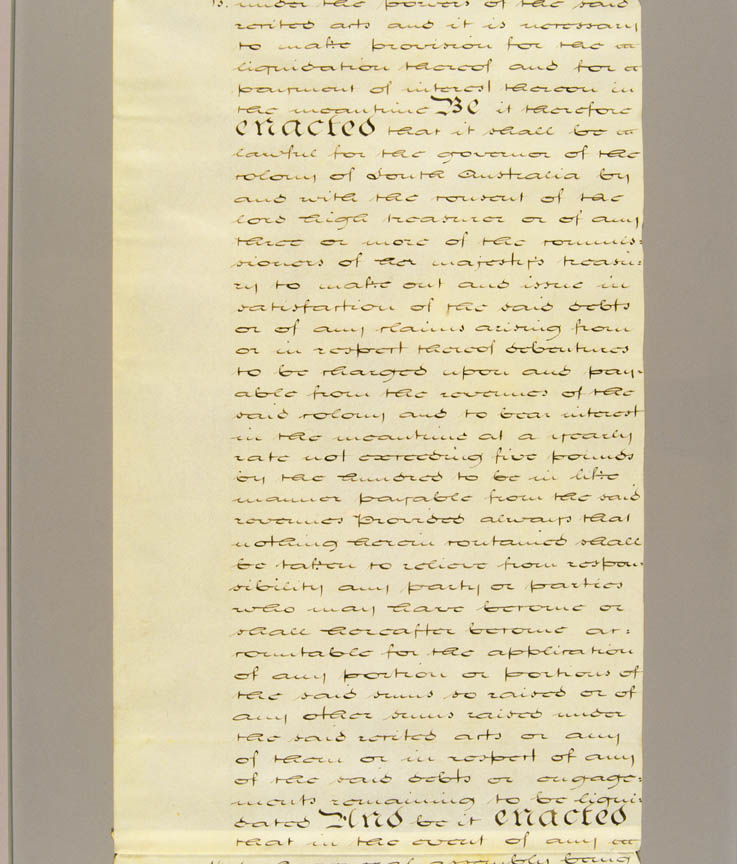 under the powers of the said
recited acts and it is necessary
to make provision for the
liquidation thereof and for
payment of interest thereon in
the meantime Be it therefore
enacted that it shall be
lawful for the governor of the
colony of South Australia by
and with the consent of the
lord high treasurer or of any
three or more of the commis:
sioners of her majesty's treasu:
ry to make out and issue in
satisfaction of the said debts
or of any claims arising from
or in respect thereof debentures
to be charged upon and pay:
able from the revenues of the
said colony and to bear interest
in the meantime at a yearly
rate not exceeding five pounds
by the hundred to be in like
manner payable from the said
revenues Provided always that
nothing herein contained shall
be taken to relieve from respon
sibility any party or parties
who may have become or
shall hereafter become ac:
countable for the application
of any portion or portions of
the said sums so raised or of
any other sums raised under
the said recited acts or any
of them or in respect of any
of the said debts or engage:
ments remaining to be liqui:
dated And be it enacted
that in the event of any
assembly being